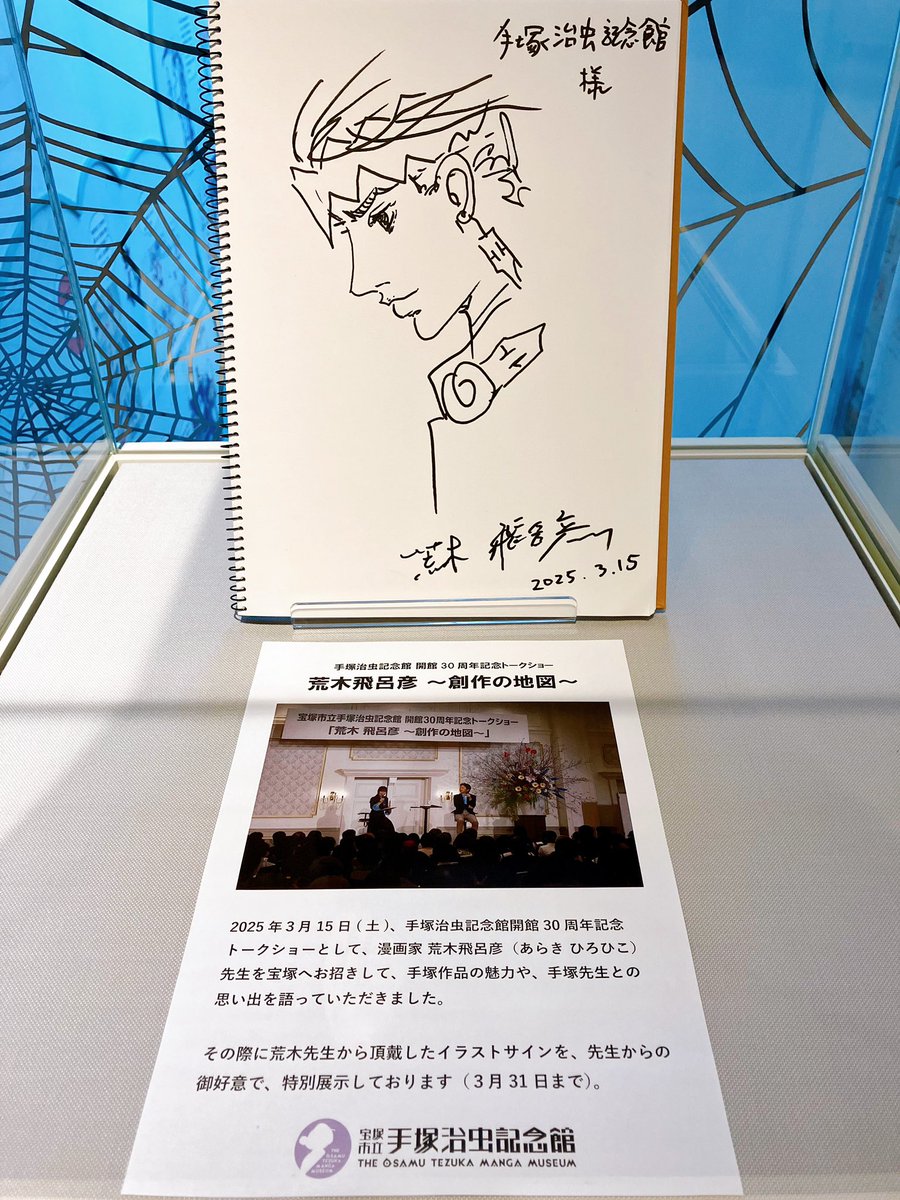 手塚治虫記念館
様
荒木 飛呂彦
2025.3.15
手塚治虫記念館 開館30周年記念トークショー
荒木飛呂彦 〜創作の地図〜
宝塚市立手塚治虫記念館 開館30周年記念トークショー
「荒木 飛呂彦 〜創作の地図〜」
2025年3月15日(土)、手塚治虫記念館開館30周年記念
トークショーとして、漫画家 荒木飛呂彦(あらき ひろひこ)
先生を宝塚へお招きして、手塚作品の魅力や、手塚先生との
思い出を語っていただきました。
その際に荒木先生から頂戴したイラストサインを、先生からの
御好意で、特別展示しております(3月31日まで)。
THE OSAMU TEZUKA MANGA MUSEUM
宝塚市立 手塚治虫記念館
THE OSAMU TEZUKA MANGA MUSEUM